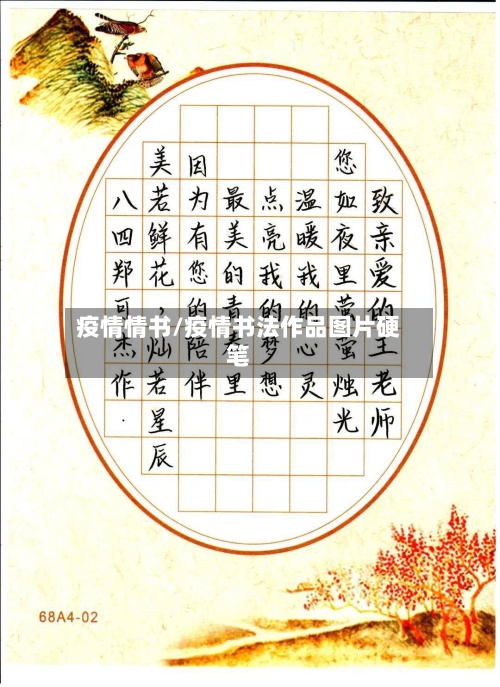 致亲爱的王老师
您如夜里萤萤烛光
温暖我的心灵
点亮我的梦想
最美的青春里
因为有您的陪伴
美若鲜花，灿若星辰
八四郑可杰作.
疫情情书/疫情书法作品图片硬
笔
68A4-02